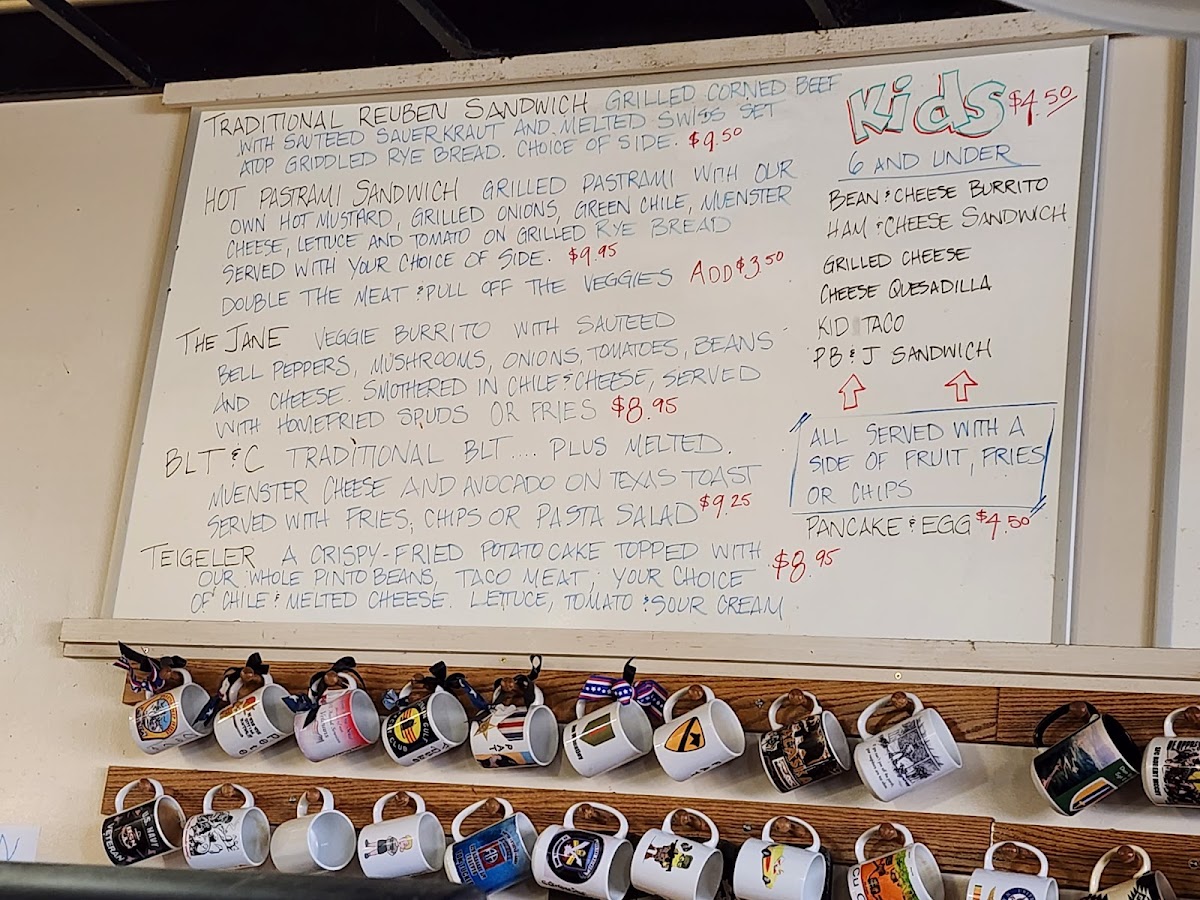 TRADITIONAL REUBEN SANDWICH GRILLED CORNED BEEF
WITH SAUTEED SAUERKRAUT AND MELTED SWISS SET
ATOP GRIDDLED RYE BREAD. CHOICE OF SIDE. $9.50
HOT PASTRAMI SANDWICH GRILLED PASTRAMI WITH OUR
OWN HOT MUSTARD, GRILLED ONIONS, GREEN CHILE, MUENSTER
CHEESE, LETTUCE AND TOMATO ON GRILLED RYE BREAD
SERVED WITH YOUR CHOICE OF SIDE. $9.95
DOUBLE THE MEAT & PULL OFF THE VEGGIES ADD $3.50
THE JANE VEGGIE BURRITO WITH SAUTEED
BELL PEPPERS, MUSHROOMS, ONIONS, TOMATOES, BEANS
AND CHEESE. SMOTHERED IN CHILE & CHEESE, SERVED
WITH HOMEFRIED SPUDS OR FRIES $8.95
BLT & C TRADITIONAL BLT.... PLUS MELTED
MUENSTER CHEESE AND AVOCADO ON TEXAS TOAST
SERVED WITH FRIES, CHIPS OR PASTA SALAD $9.25
TEIGELER A CRISPY-FRIED POTATO CAKE TOPPED WITH $8.95
OUR WHOLE PINTO BEANS, TACO MEAT, YOUR CHOICE
OF CHILE & MELTED CHEESE. LETTUCE, TOMATO & SOUR CREAM
Kids $4.50
6 AND UNDER
BEAN & CHEESE BURRITO
HAM & CHEESE SANDWICH
GRILLED CHEESE
CHEESE QUESADILLA
KID TACO
PB & J SANDWICH
ALL SERVED WITH A
SIDE OF FRUIT, FRIES
OR CHIPS
PANCAKE & EGG $4.50
GULF
CLUB
PAT
U.S. NAVY
VETERAN